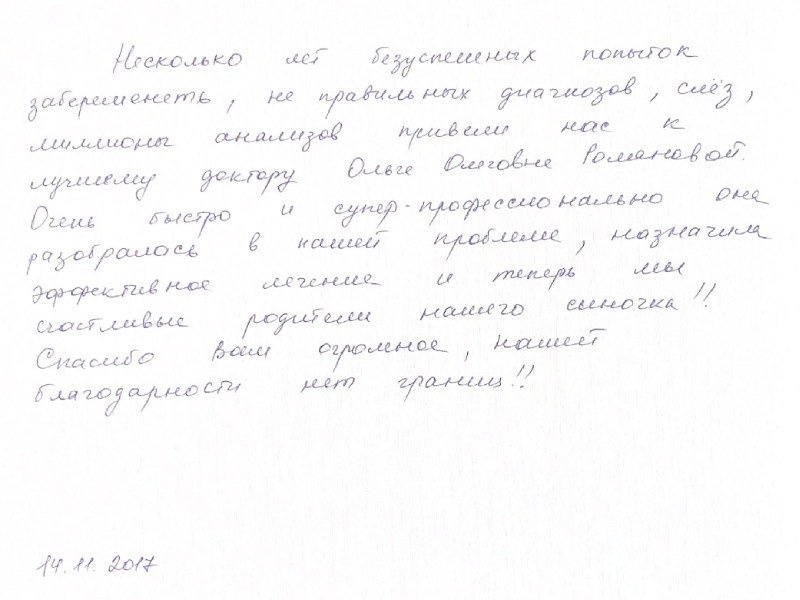 Несколько лет безуспешных попыток
забеременеть, не правильных диагнозов, слёз,
миллионы анализов привели нас к
лучшему доктору Ольге Олеговне Романовой.
Очень быстро и супер-профессионально она
разобралась в нашей проблеме, назначила
эффективное лечение и теперь мы
счастливые родители нашего сыночка!!
Спасибо Вам огромное, нашей
благодарности нет границ!!
14.11.2017